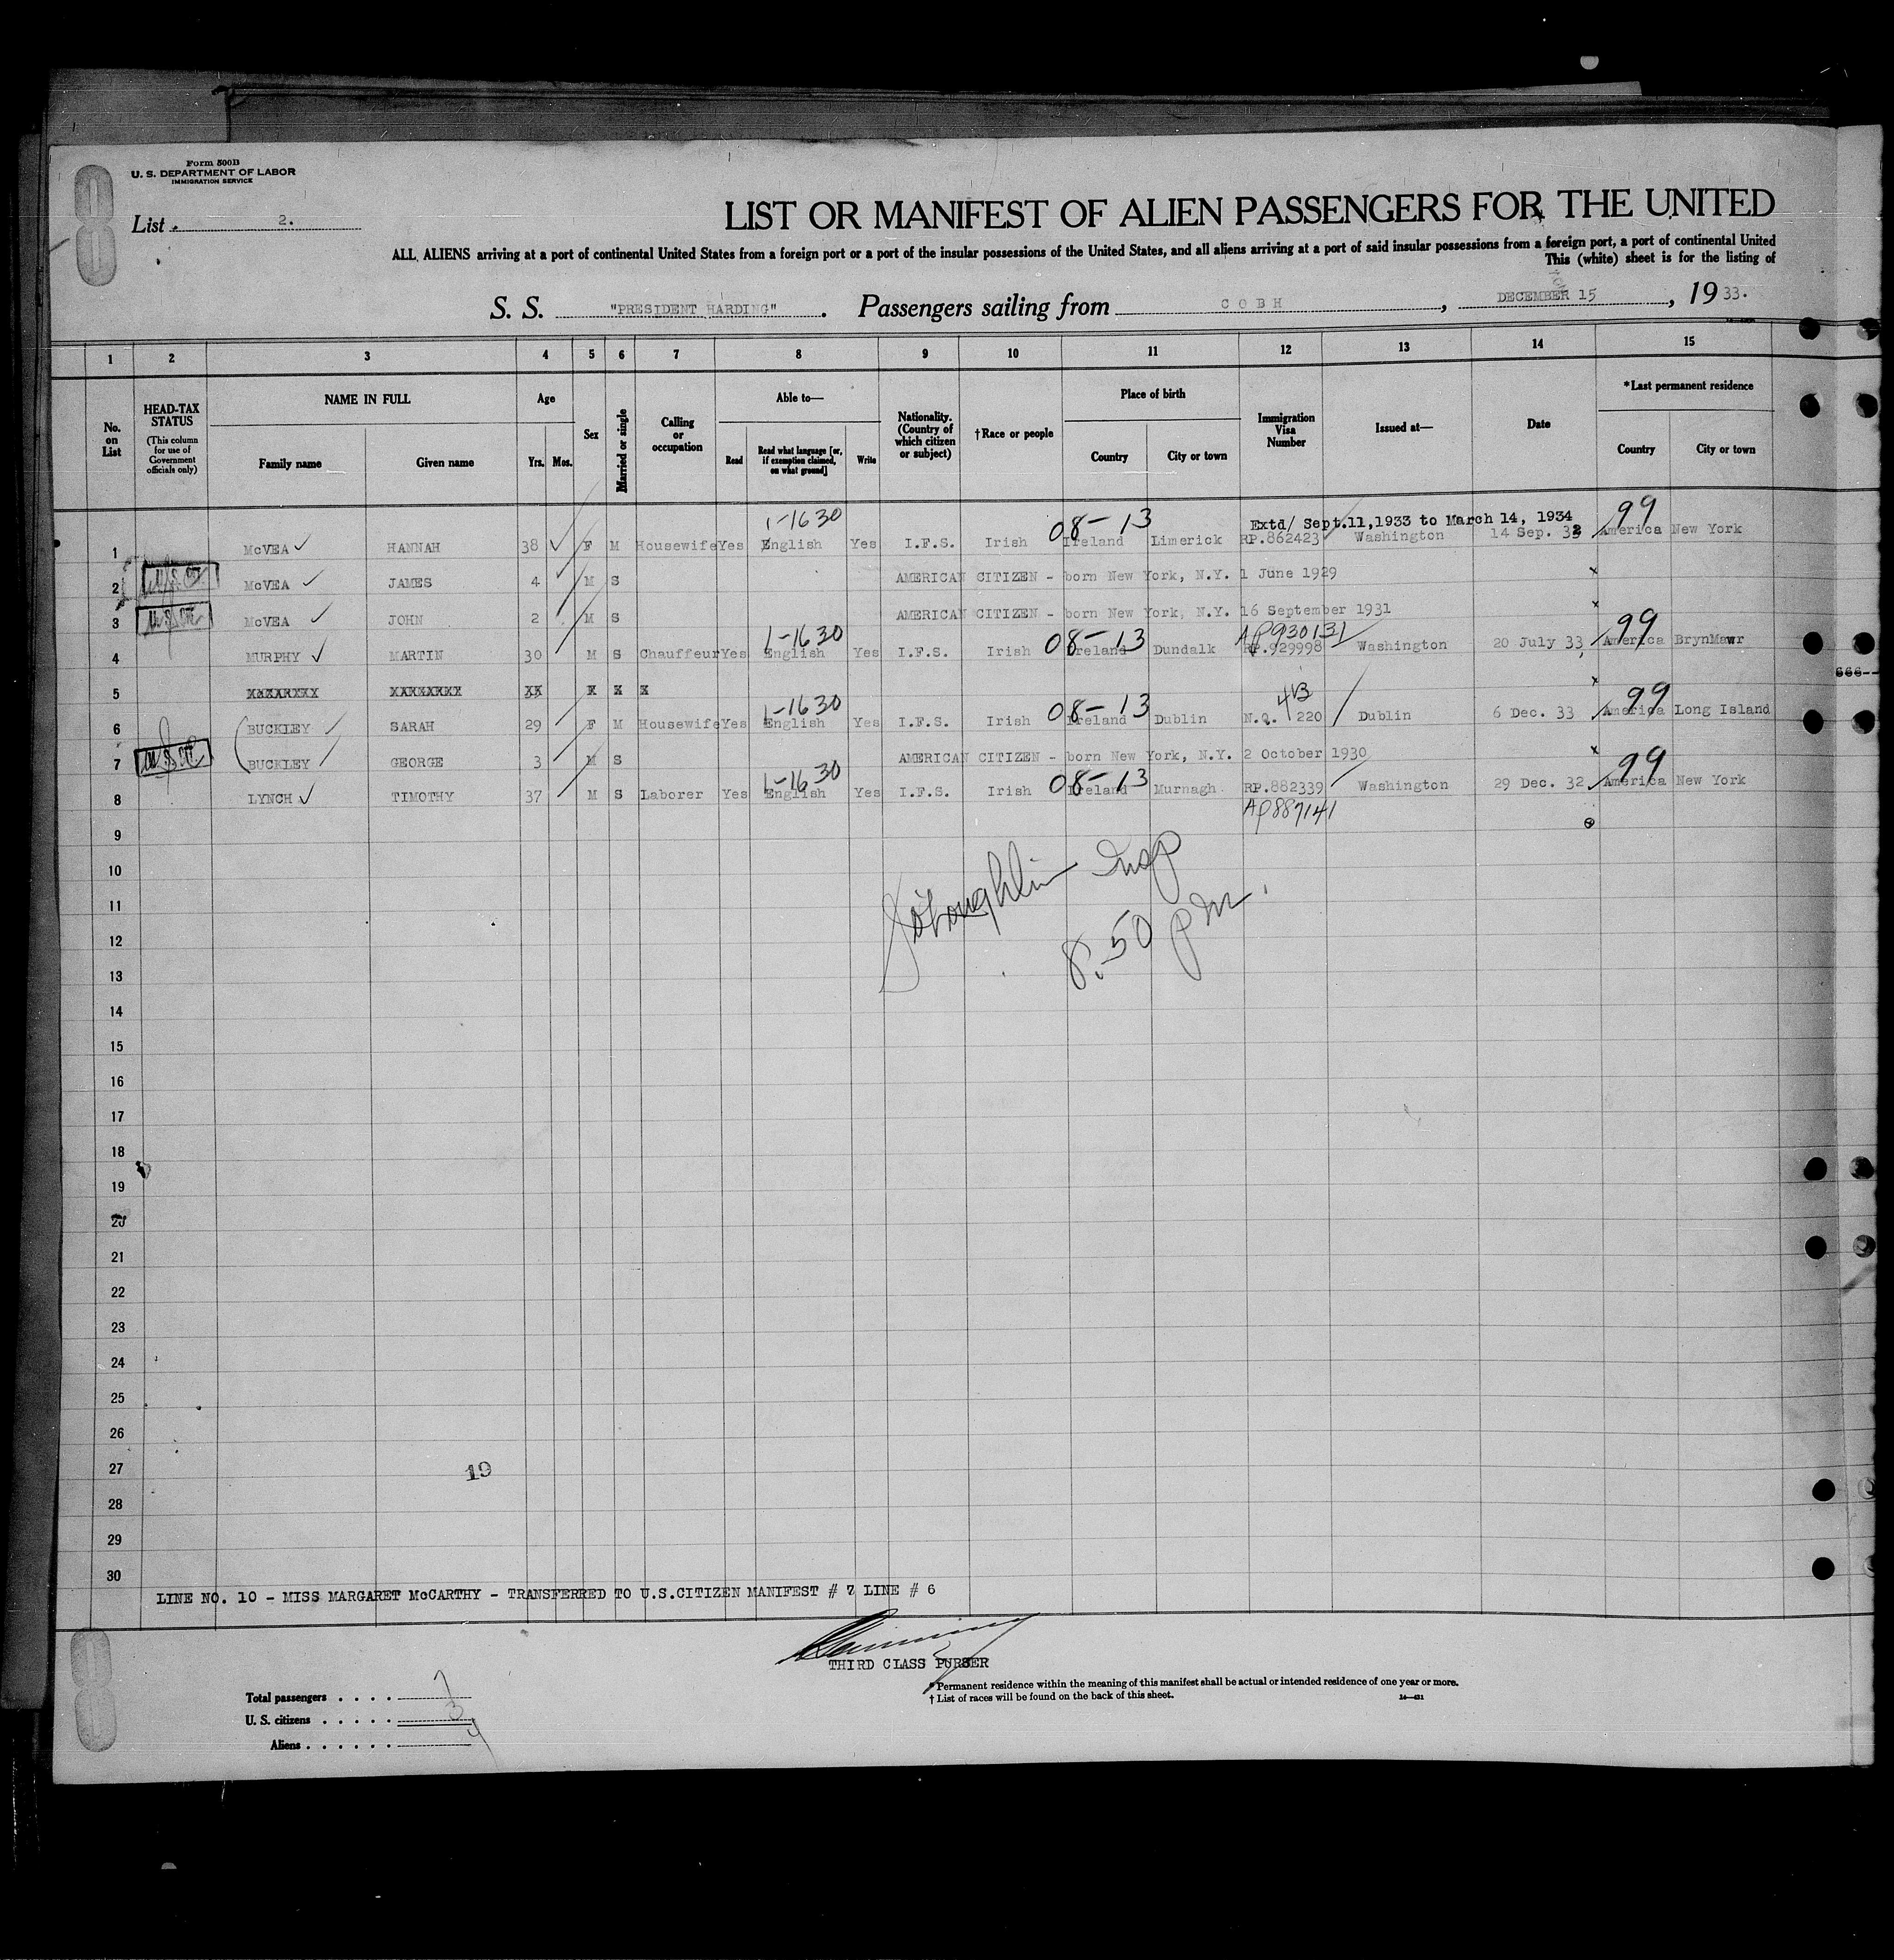 Form 500B
U. S. DEPARTMENT OF LABOR
IMMIGRATION SERVICE
List 2.
LIST OR MANIFEST OF ALIEN PASSENGERS FOR THE UNITED
ALL ALIENS arriving at a port of continental United States from a foreign port or a port of the insular possessions of the United States, and all aliens arriving at a port of said insular possessions from a foreign port, a port of continental United
This (white) sheet is for the listing of
S. S. "PRESIDENT HARDING". Passengers sailing from COBH, DECEMBER 15, 1933.
1 2 3 4 5 6 7 8 9 10 11 12 13 14 15
No. on List
HEAD-TAX STATUS (This column for use of Government officials only)
NAME IN FULL
Family name Given name
Age
Yrs. Mos.
Sex
Married or single
Calling or occupation
Able to—
Read Read what language [or, if exemption claimed, on what ground] Write
Nationality. (Country of which citizen or subject)
†Race or people
Place of birth
Country City or town
Immigration Visa Number
Issued at—
Date
*Last permanent residence
Country City or town
1-1630 08-13 Extd/ Sept.11,1933 to March 14, 1934 99
1 McVEA HANNAH 38 F M Housewife Yes English Yes I.F.S. Irish Ireland Limerick RP.862423 Washington 14 Sep. 33 America New York
2 McVEA JAMES 4 M S AMERICAN CITIZEN - born New York, N.Y. 1 June 1929 x
3 McVEA JOHN 2 M S AMERICAN CITIZEN - born New York, N.Y. 16 September 1931 x
1-1630 08-13 AP930131 99
4 MURPHY MARTIN 30 M S Chauffeur Yes English Yes I.F.S. Irish Ireland Dundalk RP.929998 Washington 20 July 33 America BrynMawr
666--
5 XXXXXXXX XXXXXXXX XX X X X x
1-1630 08-13 4B 99
6 BUCKLEY SARAH 29 F M Housewife Yes English Yes I.F.S. Irish Ireland Dublin N.Q. 220 Dublin 6 Dec. 33 America Long Island
7 BUCKLEY GEORGE 3 M S AMERICAN CITIZEN - born New York, N.Y. 2 October 1930 x
1-1630 08-13 99
8 LYNCH TIMOTHY 37 M S Laborer Yes English Yes I.F.S. Irish Ireland Murnagh RP.882339 Washington 29 Dec. 32 America New York
AP887141
9
10
11
O'Loughlin Insp
12
8.50 PM.
13
14
15
16
17
18
19
20
21
22
23
24
25
26
27
19
28
29
30
LINE NO. 10 - MISS MARGARET McCARTHY - TRANSFERRED TO U.S.CITIZEN MANIFEST # 7 LINE # 6
THIRD CLASS PURSER
* Permanent residence within the meaning of this manifest shall be actual or intended residence of one year or more.
† List of races will be found on the back of this sheet.
14—431
Total passengers . . . . 7
U. S. citizens . . . . . 3
Aliens . . . . . . 4